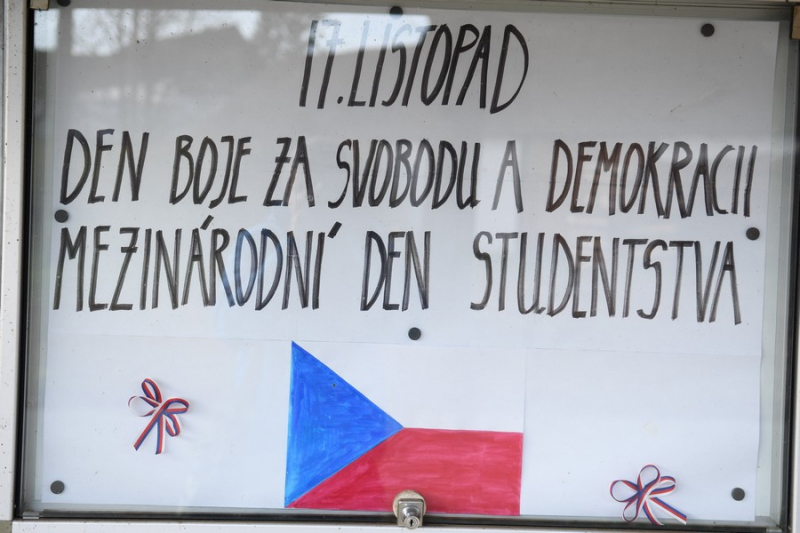 17. LISTOPAD
DEN BOJE ZA SVOBODU A DEMOKRACII
MEZINÁRODNÍ DEN STUDENTSTVA